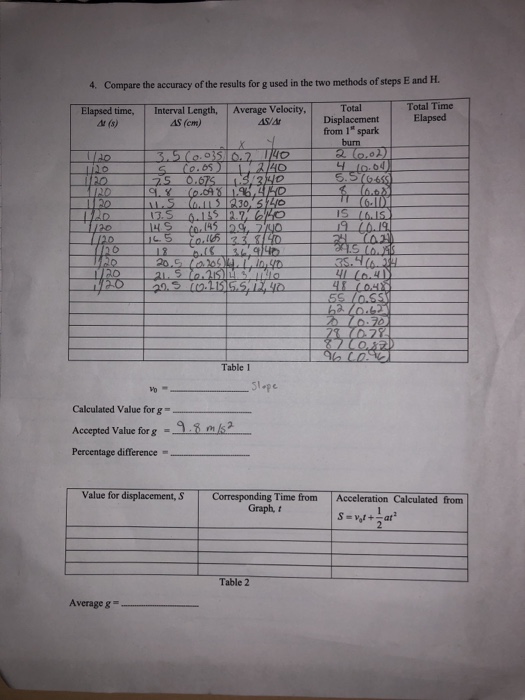 4. Compare the accuracy of the results for g used in the two methods of steps E and H.
Elapsed time, Δt (s) Interval Length, ΔS (cm) Average Velocity, ΔS/Δt Total Displacement from 1st spark burn Total Time Elapsed
X Y
1/20 3.5 (0.035) 0.7, 1/40 2 (0.02)
1/20 5 (0.05) 1, 2/40 4 (0.04)
1/20 7.5 0.075 1.5/3/40
1/20 9.8 (0.098) 1.96, 4/40 8 (0.08)
1/20 11.5 (0.115 230, 5/40 11 (0.11)
1/20 13.5 2.7, 6/40 15 (0.15)
1/20 14.5 (0.145 2.9, 7/40 19 (0.19
1/20 16.5 (0.165 3.3, 8/40 24
1/20 18 0.18 3.6, 9/40
1/20 20.5 (0.205) 4.1, 10/40
1/20 21.5 (0.215) 11/40 41 (0.41)
1/20 5.5, 12/40 48 (0.48)
55 (0.55)
62 (0.62)
70 (0.70)
78 (0.78)
87 (0.87)
96 (0.96)
Table 1
v₀ = Slope
Calculated Value for g =
Accepted Value for g = 9.8 m/s²
Percentage difference =
Value for displacement, S Corresponding Time from Graph, t Acceleration Calculated from S = v₀t + ½at²
Table 2
Average g =